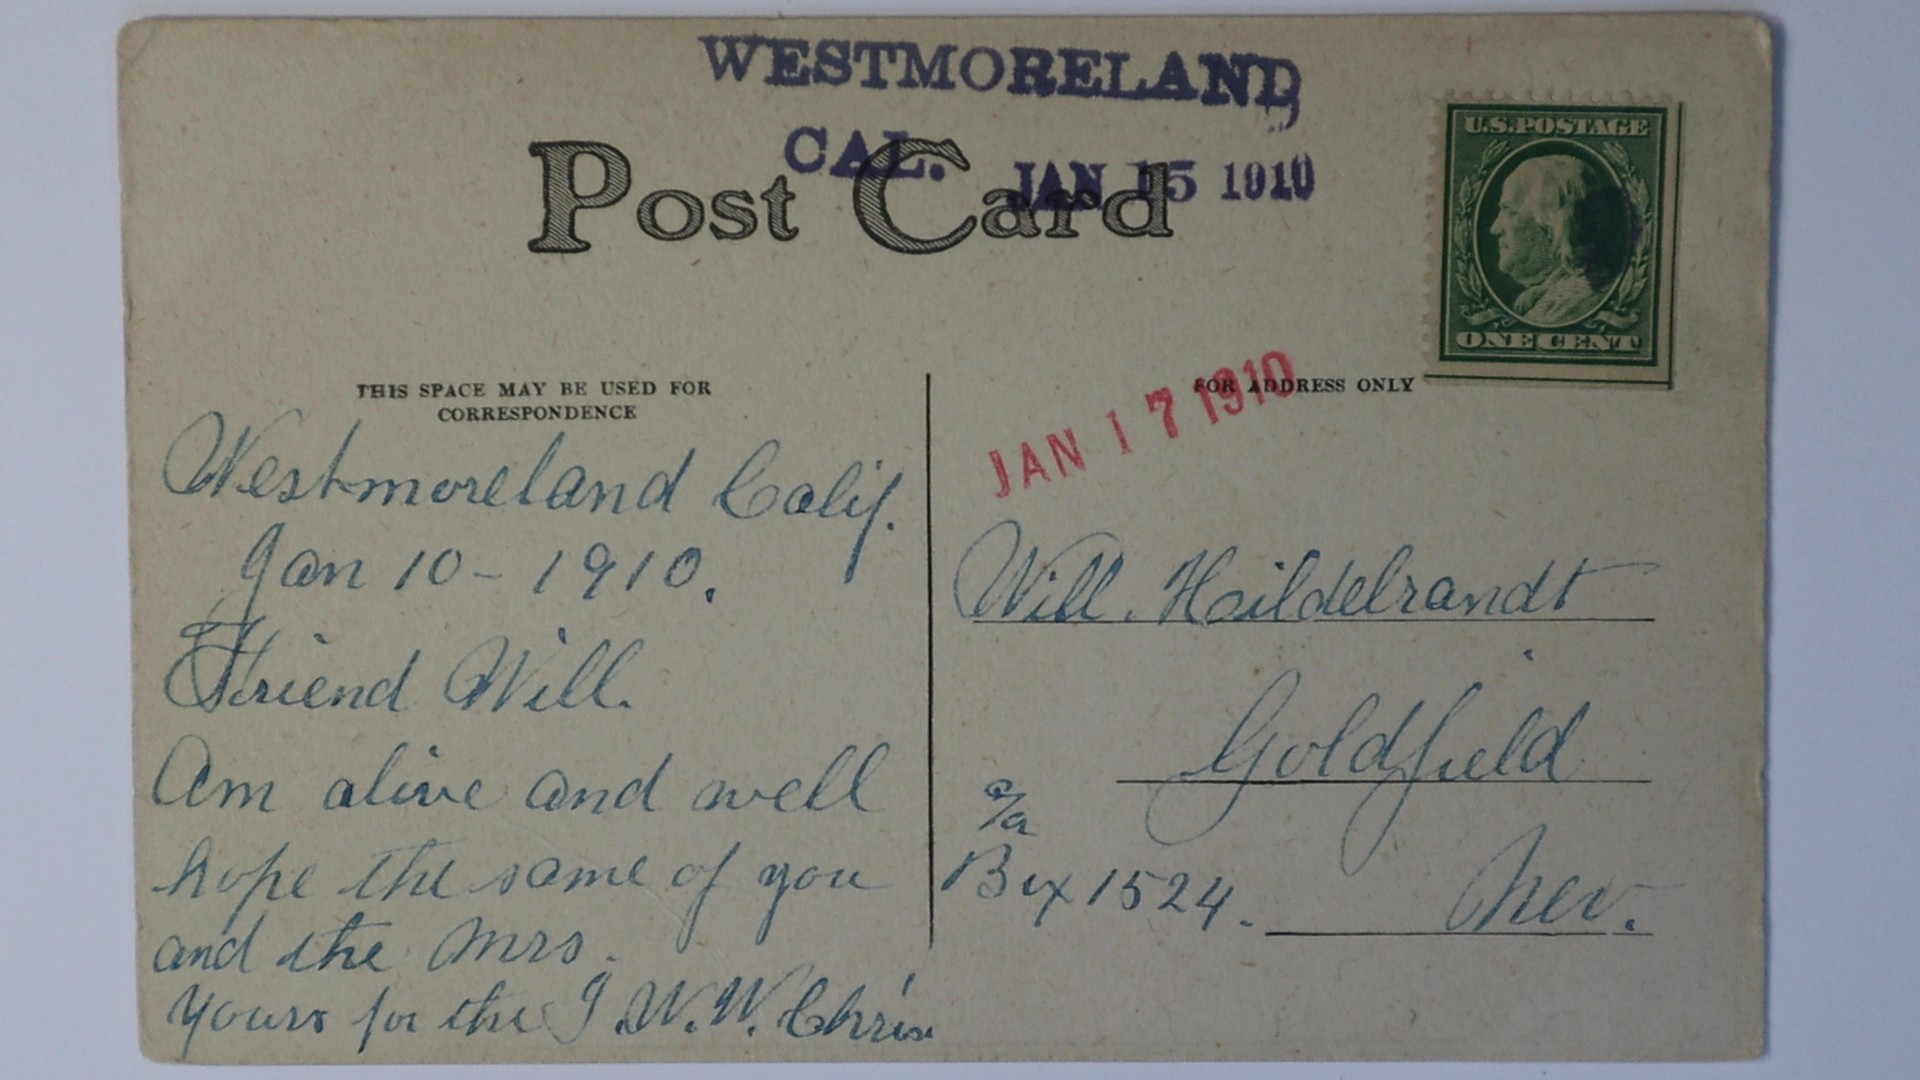 WESTMORELAND
CAL. JAN 15 1910
Post Card
U.S. POSTAGE
ONE CENT
THIS SPACE MAY BE USED FOR
CORRESPONDENCE
Westmoreland Calif.
Jan 10 - 1910.
Friend Will.
Am alive and well
hope the same of you
and the Mrs.
Yours for the I.W.W. Chris
FOR ADDRESS ONLY
JAN 17 1910
Will. Heildebrandt
Goldfield
Box 1524. Nev.